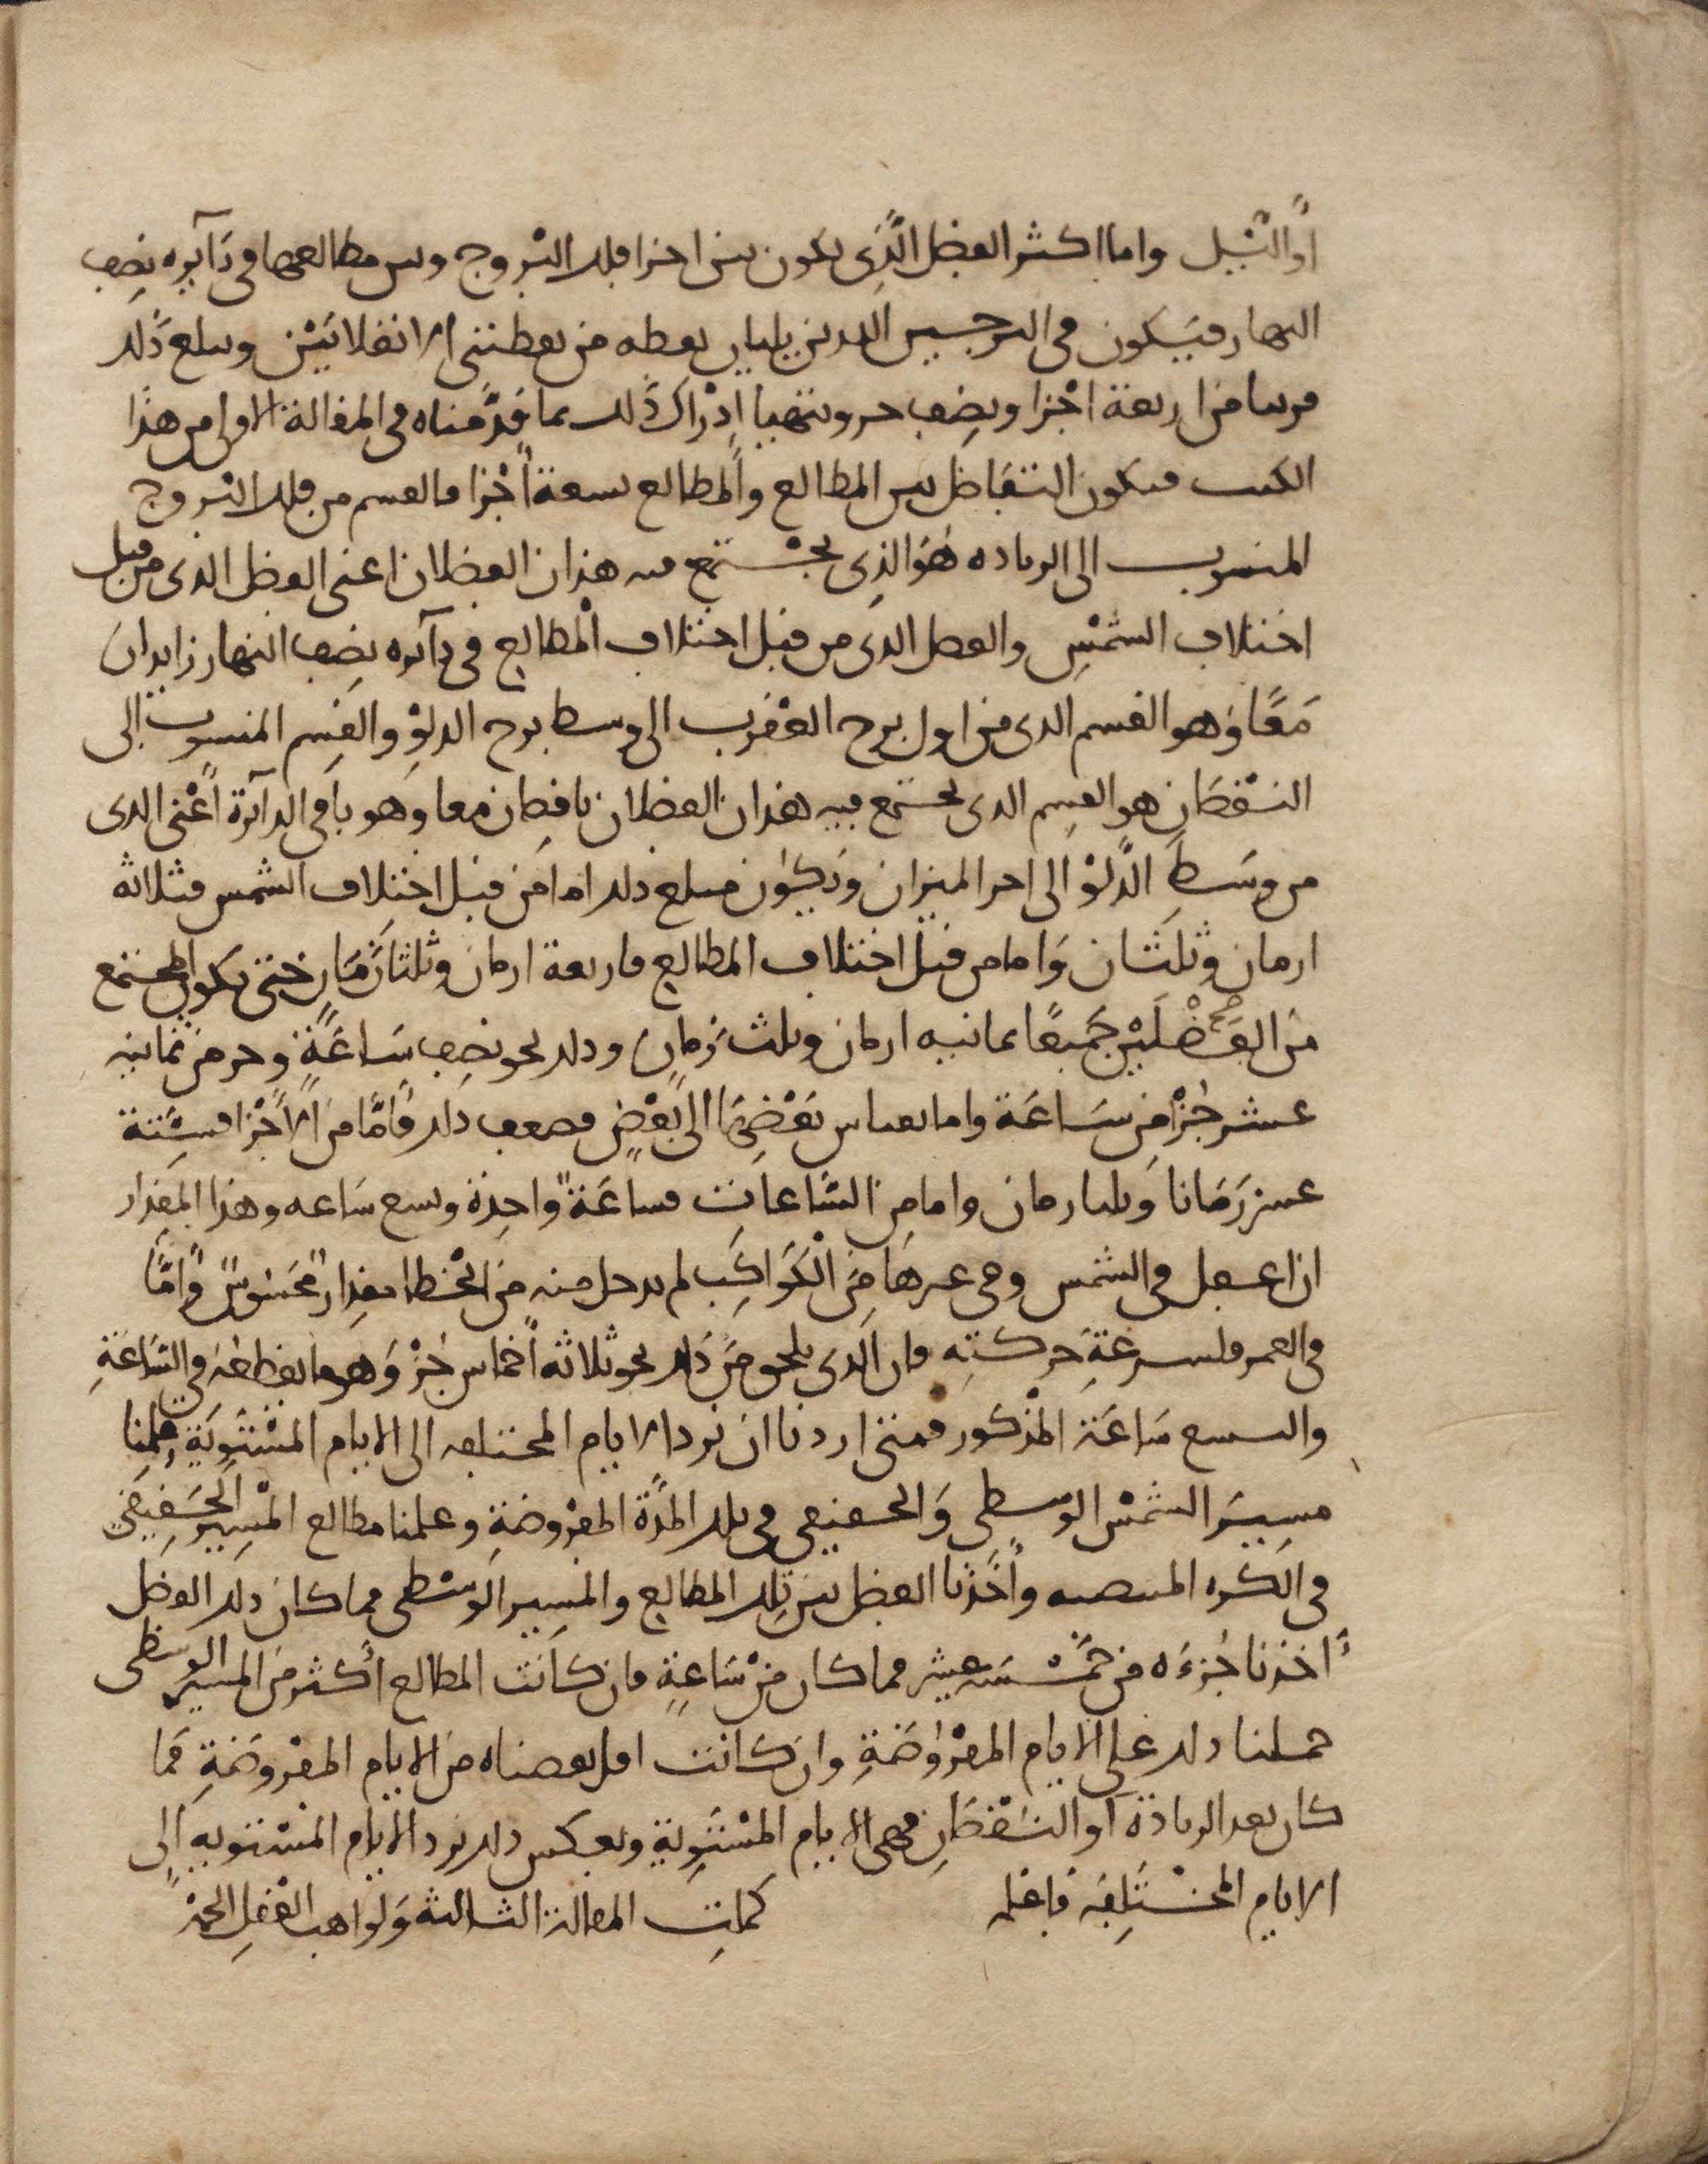 أو الليل واما اكثر الفضل الَّذِى يكون بين اجزا فلك البروج وبين مطالعها فى دَآيره نصف
النهار فيَكون فى البرجين اللذين يليان نقطه من نقطتى الانقلابَيْن ويبلغ ذَلك
قريبا من اربعة اجْزا ونِصف جز ويتهيا اِدْراك ذَلك بما قدَّمناه فى المقالة الاولى من هذا
الكتب فيكون التفَاضل بين المطالع وَالمطالع تسعة أجْزا فالقسم من فلك البروج
المنسوب الى الزياده هُوَ الذِى يجْتمع فيه هذان الفضلان اعنى الفضل الذى من قبل
اختلاف الشمْسِ والفضل الذى من قبل اختلاف الْمطالِع فى دآيره نِصف النهار زايدان
مَعًا وَهو القسم الذى من اول برج العقرب الى وسط برج الدلوْ والقِسم المنسوب الى
النقْصَان هو القسِم الذى يجتمع فيه هذان الفضلان ناقصان معا وَهو باقى الدآئرة أعْنى الذى
من وسَط الدَّلوْ الى اخر الميزان وَيكون مبلغ ذلك اما مِن قبل اختِلاف الشمس فثلاثه
ازمان وثلثان وَاما من قبل اختلاف المطالِع فاربعة ازمان وثلثا زمَان حَتى يكون المجتمع
من الفَضْلَيْن جَميعًا ثمانيه ازمان وثلث زَمان وذلك نحو نصِف سَاعَةٍ وجز من ثمانيه
عشر جُزْا مِن سَاعَة واما بقياس بَعْضِهَا الى بَعْضٍ فضعف ذلك فأمَّا من الأَجْزا فسِتة
عشر زمَانا وَثلثا زمان واما مِن السَّاعاتِ فساعَة واحِدَة وتسع سَاعه وهذا المِقدار
اذا اغفل فى الشمس وفى غيرهَا مِنَ الْكَوَاكِب لم يدخل منه مِن الخْطا مِقدار مَحسُوسٌ وَأمَّا
فى القمر فلسرعَةِ حركتِه فان الذى يلحق مِنَ ذَلك نحو ثلاثه أخماس جُزْ وَهو ما يقطعُه فى السَّاعَةِ
والتسع سَاعَة المذْكور فمتى اردنا ان نرد الايام المختلفه الى الايام المسْتَوِيَة علمنا
مسِيرَ الشمْس الوسطى وَالحقيقى فى تلك المدَّة المفْروضَةِ وعلمنا مطالع المسِير الحَقِيقى
فى الكره المنتصبه وأخَذْنا الفضل بين تِلك المطالِع والمسِير الوسْطى فما كان ذلك الفضَل
أخذنا جُزءَه مِن خمْسَه عشر فما كان مِنْ سَاعةٍ فان كانت المطالع أكثر من المسير الوسطى
حملنا ذلك على الايام المفْرُوضَةِ وان كانت اقل نقصناه من الايام المفْروضَةِ فمَا
كان بعد الزيادَة أو النقْصَانِ فهى الايام المسْتَوِية وبعكس ذلك نرد الايَام المسْتويه الَى
الايام المخْتَلِفَه فاعْلمه
كملَتِ المقالة الثالثه وَلواهب العَقلِ الحمْد